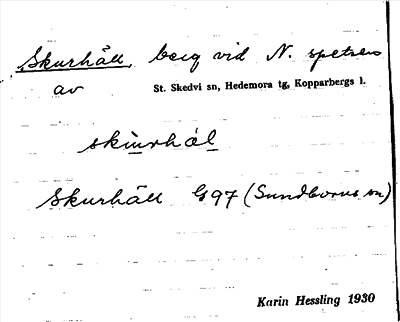 Skurhäll, berg vid N. spetsen
av St. Skedvi sn, Hedemora tg, Kopparbergs l.
skurhäl
Skurhäll G97 (Sundborns sn)
Karin Hessling 1930